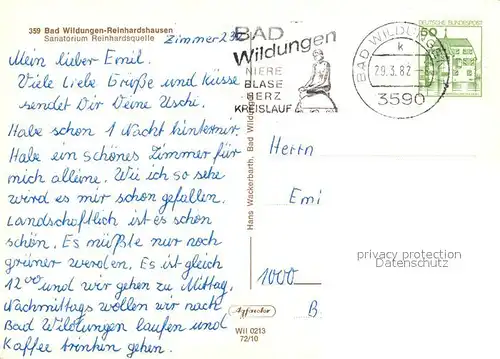 359 Bad Wildungen-Reinhardshausen
Sanatorium Reinhardsquelle
Zimmer 232
Mein lieber Emil.
Viele Liebe Grüße und Küsse
sendet Dir Deine Uschi.
Habe schon 1 Nacht hinter mir.
Habe ein schönes Zimmer für
mich alleine. Wie ich so sehe
wird es mir schon gefallen.
Landschaftlich ist es schon
schön. Es müßte nur noch
grüner werden. Es ist gleich
12 00 und wir gehen zu Mittag.
Nachmittags wollen wir nach
Bad Wildungen laufen und
Kaffee trinken gehen.
Hans Wackerbarth, Bad Wildungen
BAD
Wildungen
NIERE
BLASE
HERZ
KREISLAUF
BAD WILDUNGEN
k
29.3.82
3590
DEUTSCHE BUNDESPOST
50
Herrn
Emi
privacy protection
Datenschutz
1000
B
Agfacolor
Wil 0213
72/10